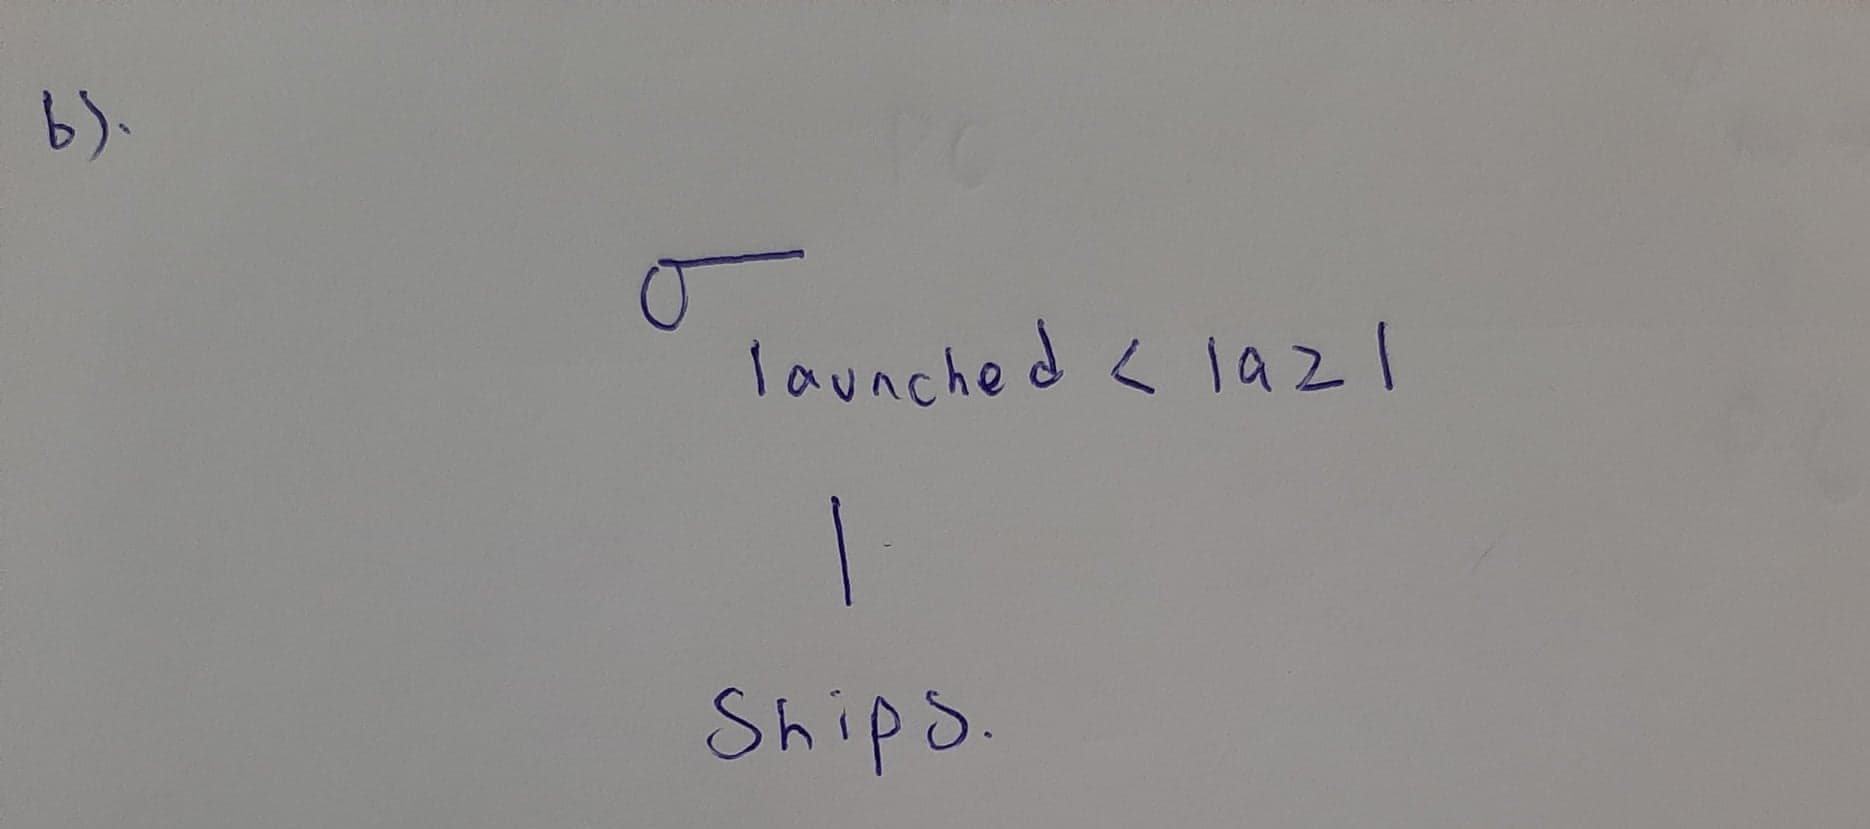 b).
σ
launched < 1921
|
Ships.